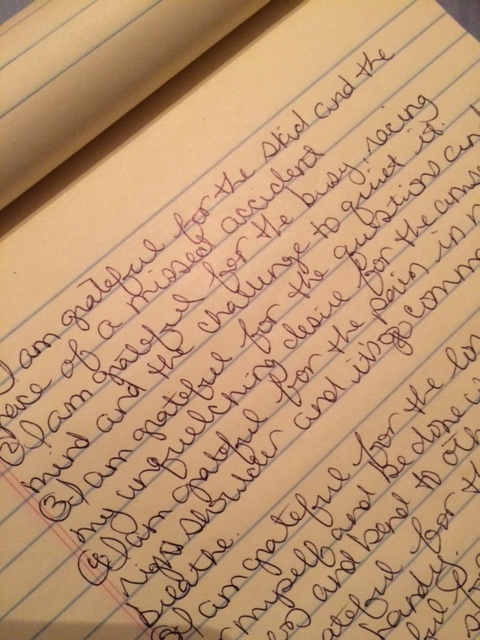 I am grateful for the skid and the
of a missed accident
② I am grateful for the busy, racing
mind and the challenge to quiet it.
③ I am grateful for the questions and
my unquelching desire for the
④ I am grateful for the pain in
right shoulder and it's
breathe.
I am grateful for the
myself and be done
and bend to
grateful for
handy.
for